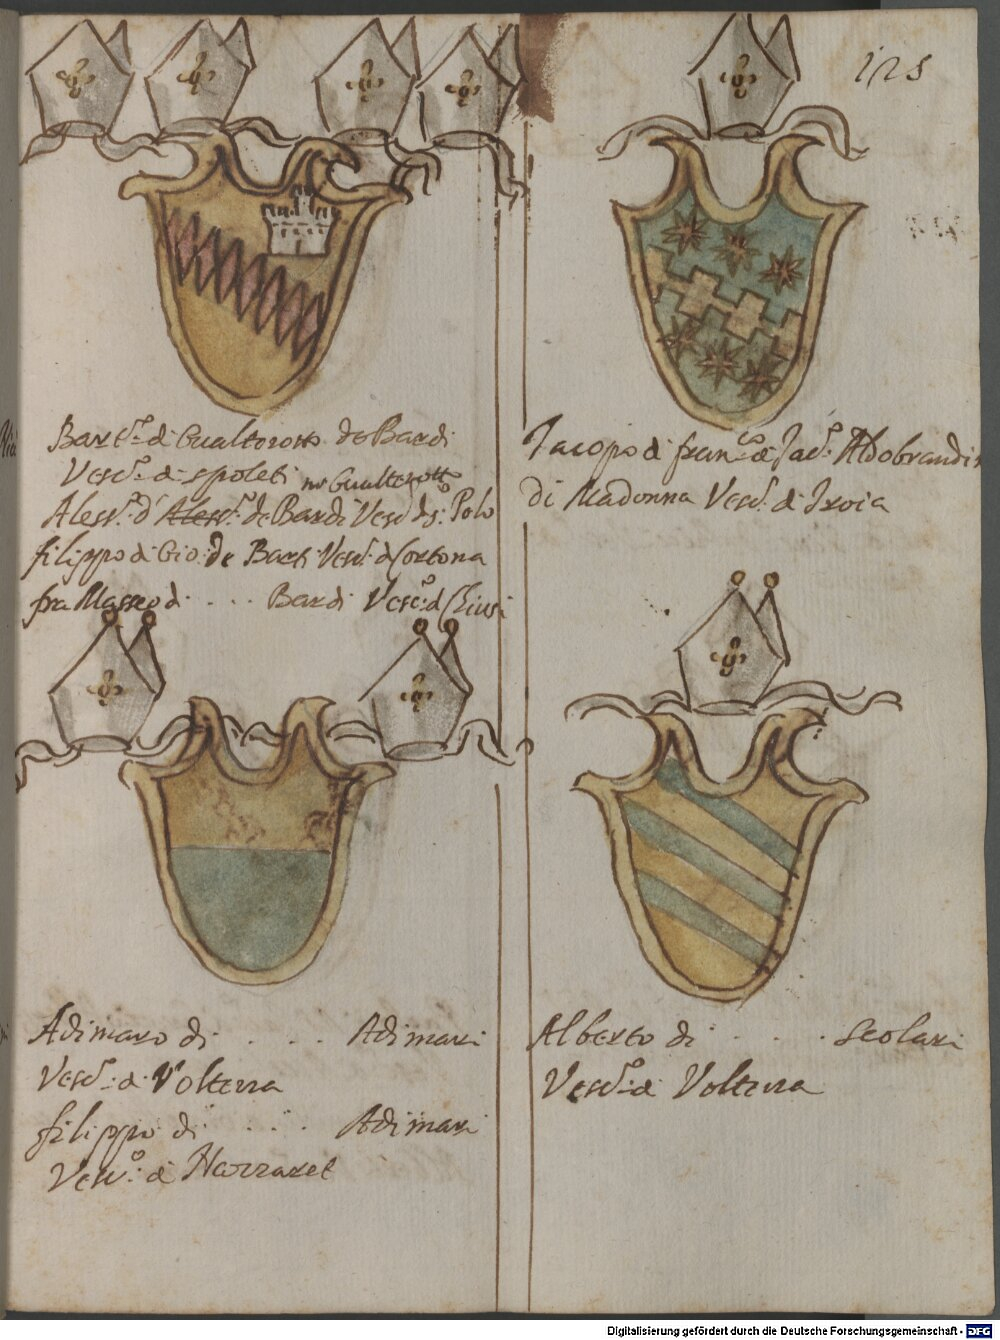 125
Bart.º di Gualterotto de Bardi
Vesc.º di spoleti
no Gualterotto
Aless.º d' Aless.º de Bardi Vesc.º di S. Polo
filippo di Gio: de Bardi Vesc.º di Cortona
fra Masseo di . . . . Bardi Vesc.º di Chiusi
Iacopo di fran.co di Iac.º Aldobrandini
Di Madonna Vesc.º di Troia
Adimaro di . . . . Adimari
Vesc.º di Volterra
filippo di . . . . Adimari
Vesc.º di Nazzaret
Alberto di . . . . scolari
Vesc.º di Volterra
Digitalisierung gefördert durch die Deutsche Forschungsgemeinschaft - DFG